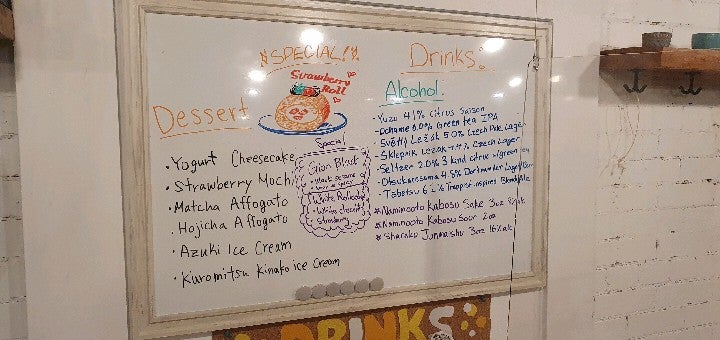 SPECIAL!
Strawberry
Roll
Dessert
· Yogurt Cheesecake
· Strawberry Mochi
· Matcha Affogato
· Hojicha Affogato
· Azuki Ice Cream
· Kuromitsu Kinako ice Cream
Special
Gion Black
White
White chocolate
Strawberry
Drinks:
Alcohol:
- Yuzu 4.1% Citrus Saison
- Green tea IPA
- Světlý Ležák 5.0% Czech Pale Lager
- Sklepnik Ležák 4.4% Czech Lager
- Seltzer 2.0% 3 kind citrus
- 4.8% Dortmunder Lager
- Tabetsu
* Naminooto Kabosu Sake 3oz
* Naminooto Kabosu Sour 2oz
* Sharaku Junmaishu 3oz 16%
DRINKS